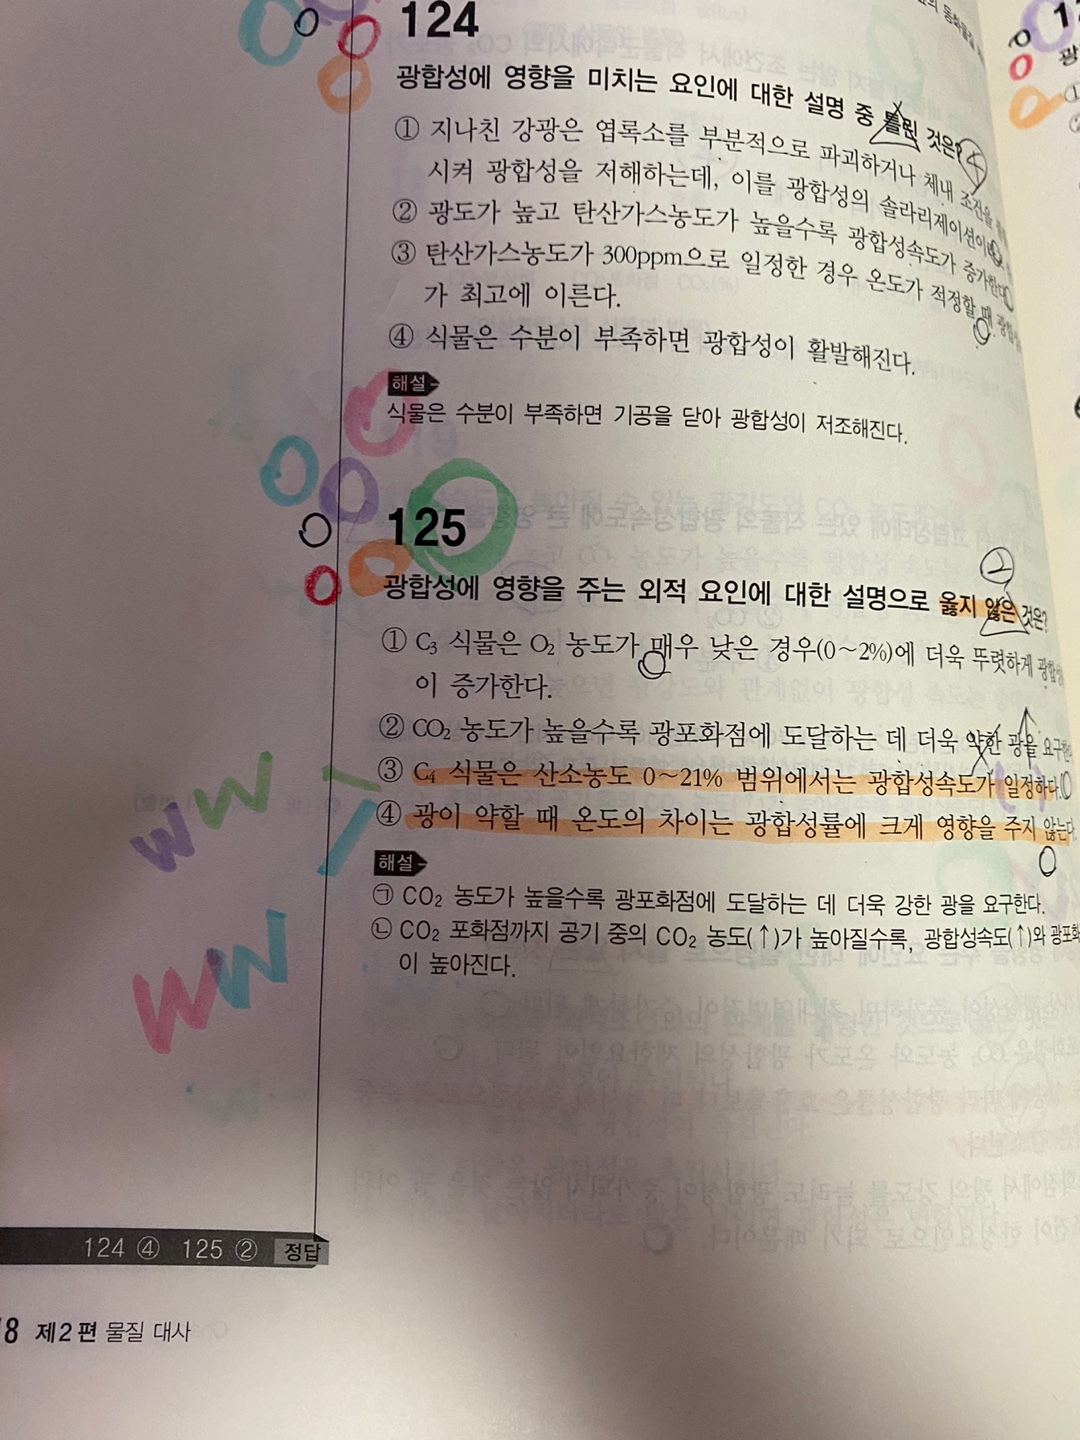 124
광합성에 영향을 미치는 요인에 대한 설명 중 틀린 것은?
④
① 지나친 강광은 엽록소를 부분적으로 파괴하거나 체내 조건을
시켜 광합성을 저해하는데, 이를 광합성의 솔라리제이션이
② 광도가 높고 탄산가스농도가 높을수록 광합성속도가 증가한다.
③ 탄산가스농도가 300ppm으로 일정한 경우 온도가 적정할 때
가 최고에 이른다.
④ 식물은 수분이 부족하면 광합성이 활발해진다.
해설
식물은 수분이 부족하면 기공을 닫아 광합성이 저조해진다.
125
②
광합성에 영향을 주는 외적 요인에 대한 설명으로 옳지 않은 것은?
① C₃ 식물은 O₂ 농도가 매우 낮은 경우(0~2%)에 더욱 뚜렷하게
이 증가한다.
② CO₂ 농도가 높을수록 광포화점에 도달하는 데 더욱 약한 광을
③ C₄ 식물은 산소농도 0~21% 범위에서는 광합성속도가 일정하다.
④ 광이 약할 때 온도의 차이는 광합성률에 크게 영향을 주지 않는다.
해설
㉠ CO₂ 농도가 높을수록 광포화점에 도달하는 데 더욱 강한 광을 요구한다.
㉡ CO₂ 포화점까지 공기 중의 CO₂ 농도(↑)가 높아질수록, 광합성속도(↑)와
이 높아진다.
W W
W W
124 ④ 125 ② 정답
8 제2편 물질 대사